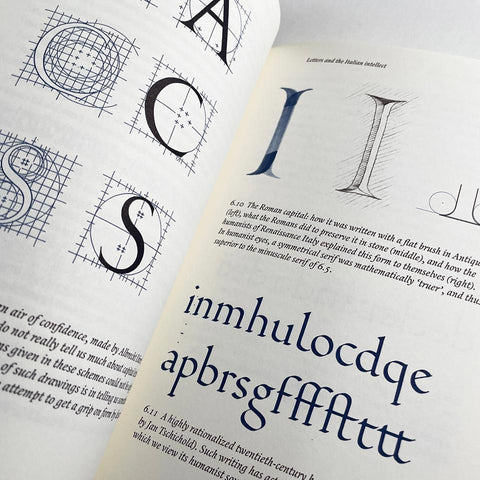 A
C C
S S
air of confidence, made by Albrecht
do not really tell us much about
given in these schemes could not
of such drawings is in telling us
attempt to get a grip on form
Letters and the Italian intellect
I I
6.10 The Roman capital: how it was written with a flat brush in Antiqu
(left), what the Romans did to preserve it in stone (middle), and how the
humanists of Renaissance Italy explained this form to themselves (right).
In humanist eyes, a symmetrical serif was mathematically ‘truer’, and thus
superior to the minuscule serif of 6.5.
inmhulocdqe
apbrsgffffttt
6.11 A highly rationalized twentieth-century h
by Jan Tschichold). Such writing has
which we view its humanist